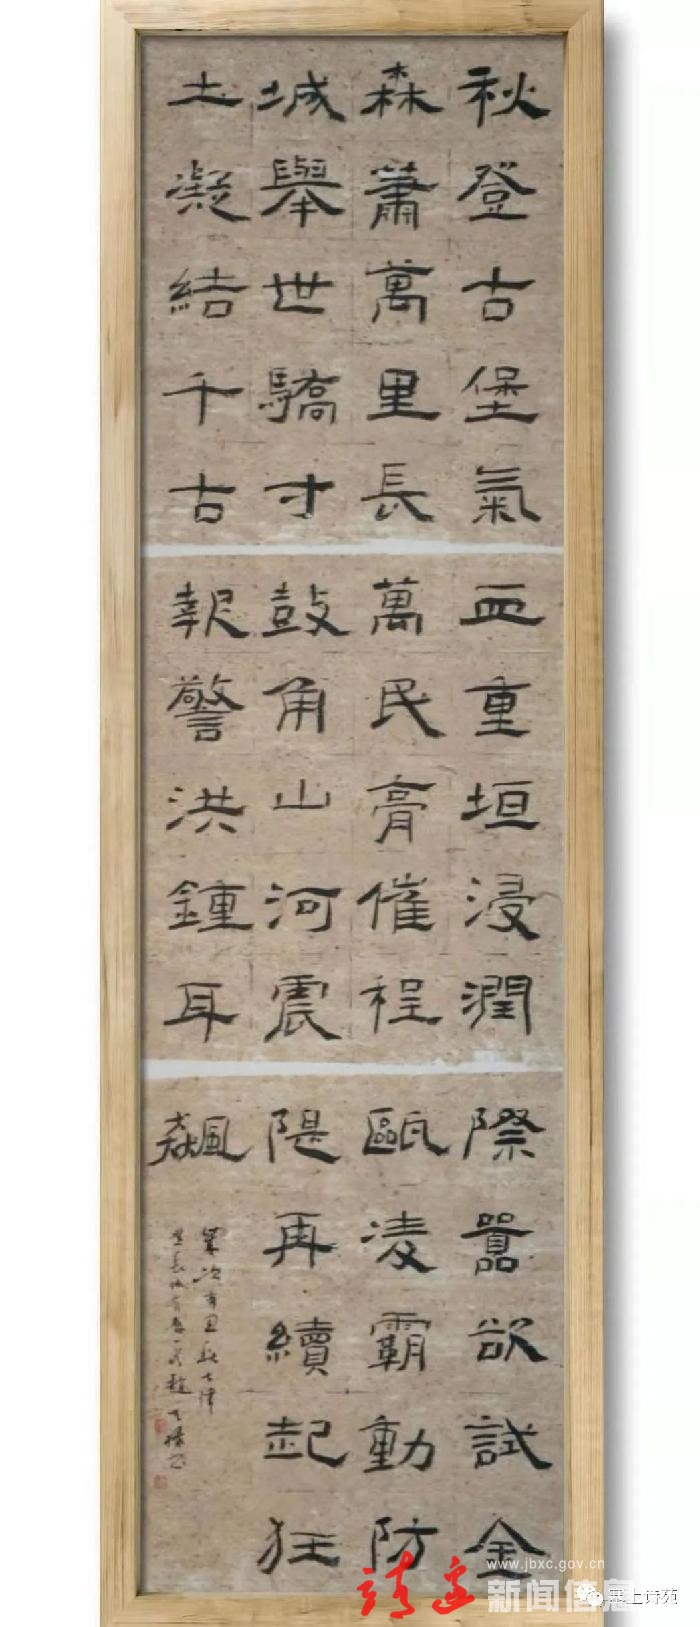 秋登古堡氣
森蕭萬里長
城舉世驕寸
土凝結千古
血重垣浸潤
萬民膏催程
鼓角山河震
報警洪鍾耳
際囂欲試金
甌凌霸動防
隄再續起狂
飆
www.jbxc.gov.cn
靖边 新闻信息
塞上诗苑